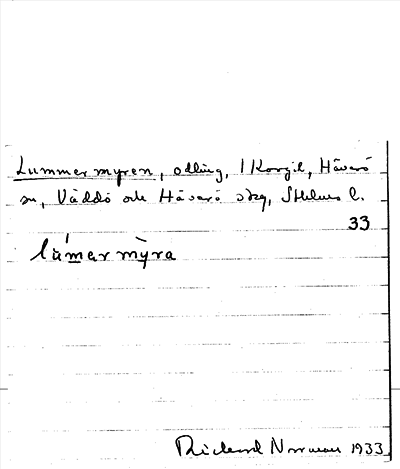 Lummermyren, odling, 1 Korgil, Häverö
sn, Väddö och Häverö skg, Sthlms l.
33
lùmermỳra
Rickard Norrman 1933